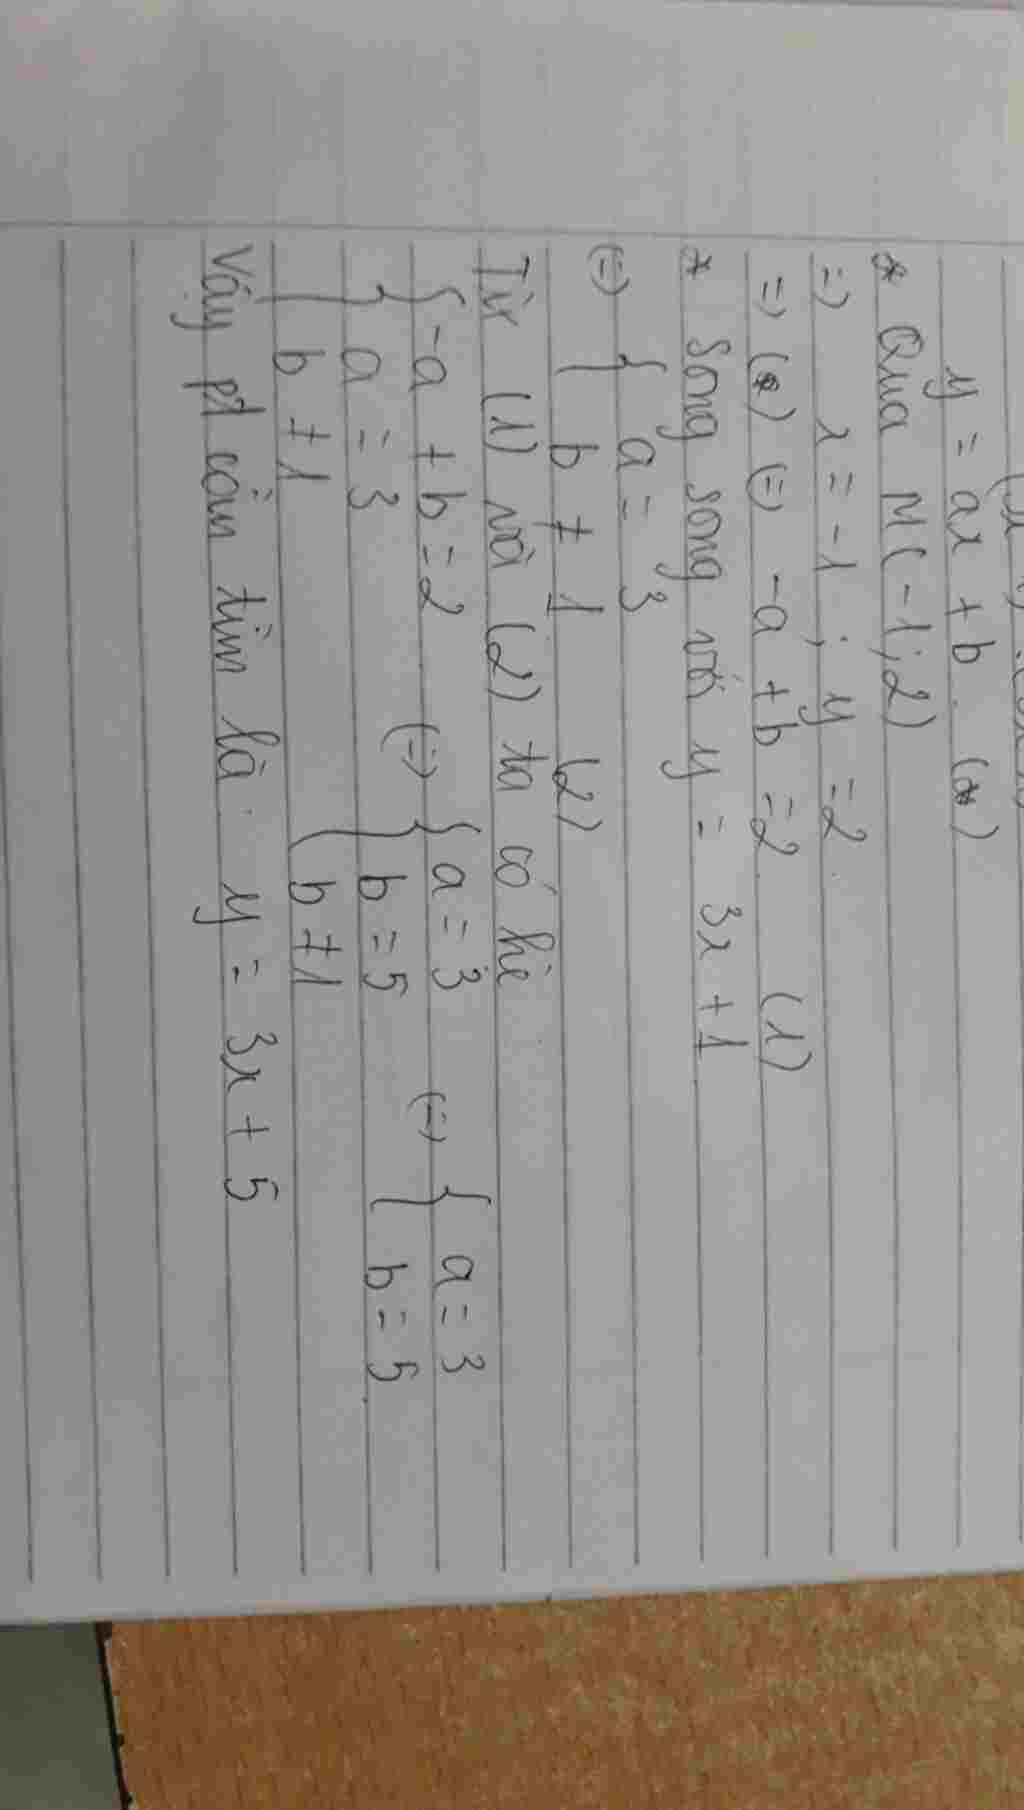 y = ax + b (*)
* Qua M(-1;2)
=> x = -1; y = 2
=> (*) (=) -a + b = 2 (1)
* Song song với y = 3x + 1
(=) { a = 3
{ b ≠ 1 (2)
Từ (1) và (2) ta có hệ
{ -a + b = 2 (=) { a = 3 (=) { a = 3
{ a = 3 { b = 5 { b = 5
{ b ≠ 1 { b ≠ 1
Vậy pt cần tìm là: y = 3x + 5